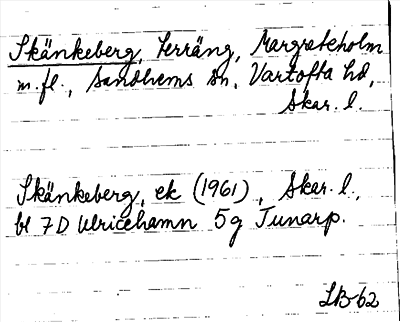 Skänkeberg, terräng, Margreteholm
m.fl., Sandhems sn, Vartofta hd,
Skar. l.
Skänkeberg, ek (1961), Skar. l.,
bl 7D Ulricehamn 5g Tunarp.
LB 62